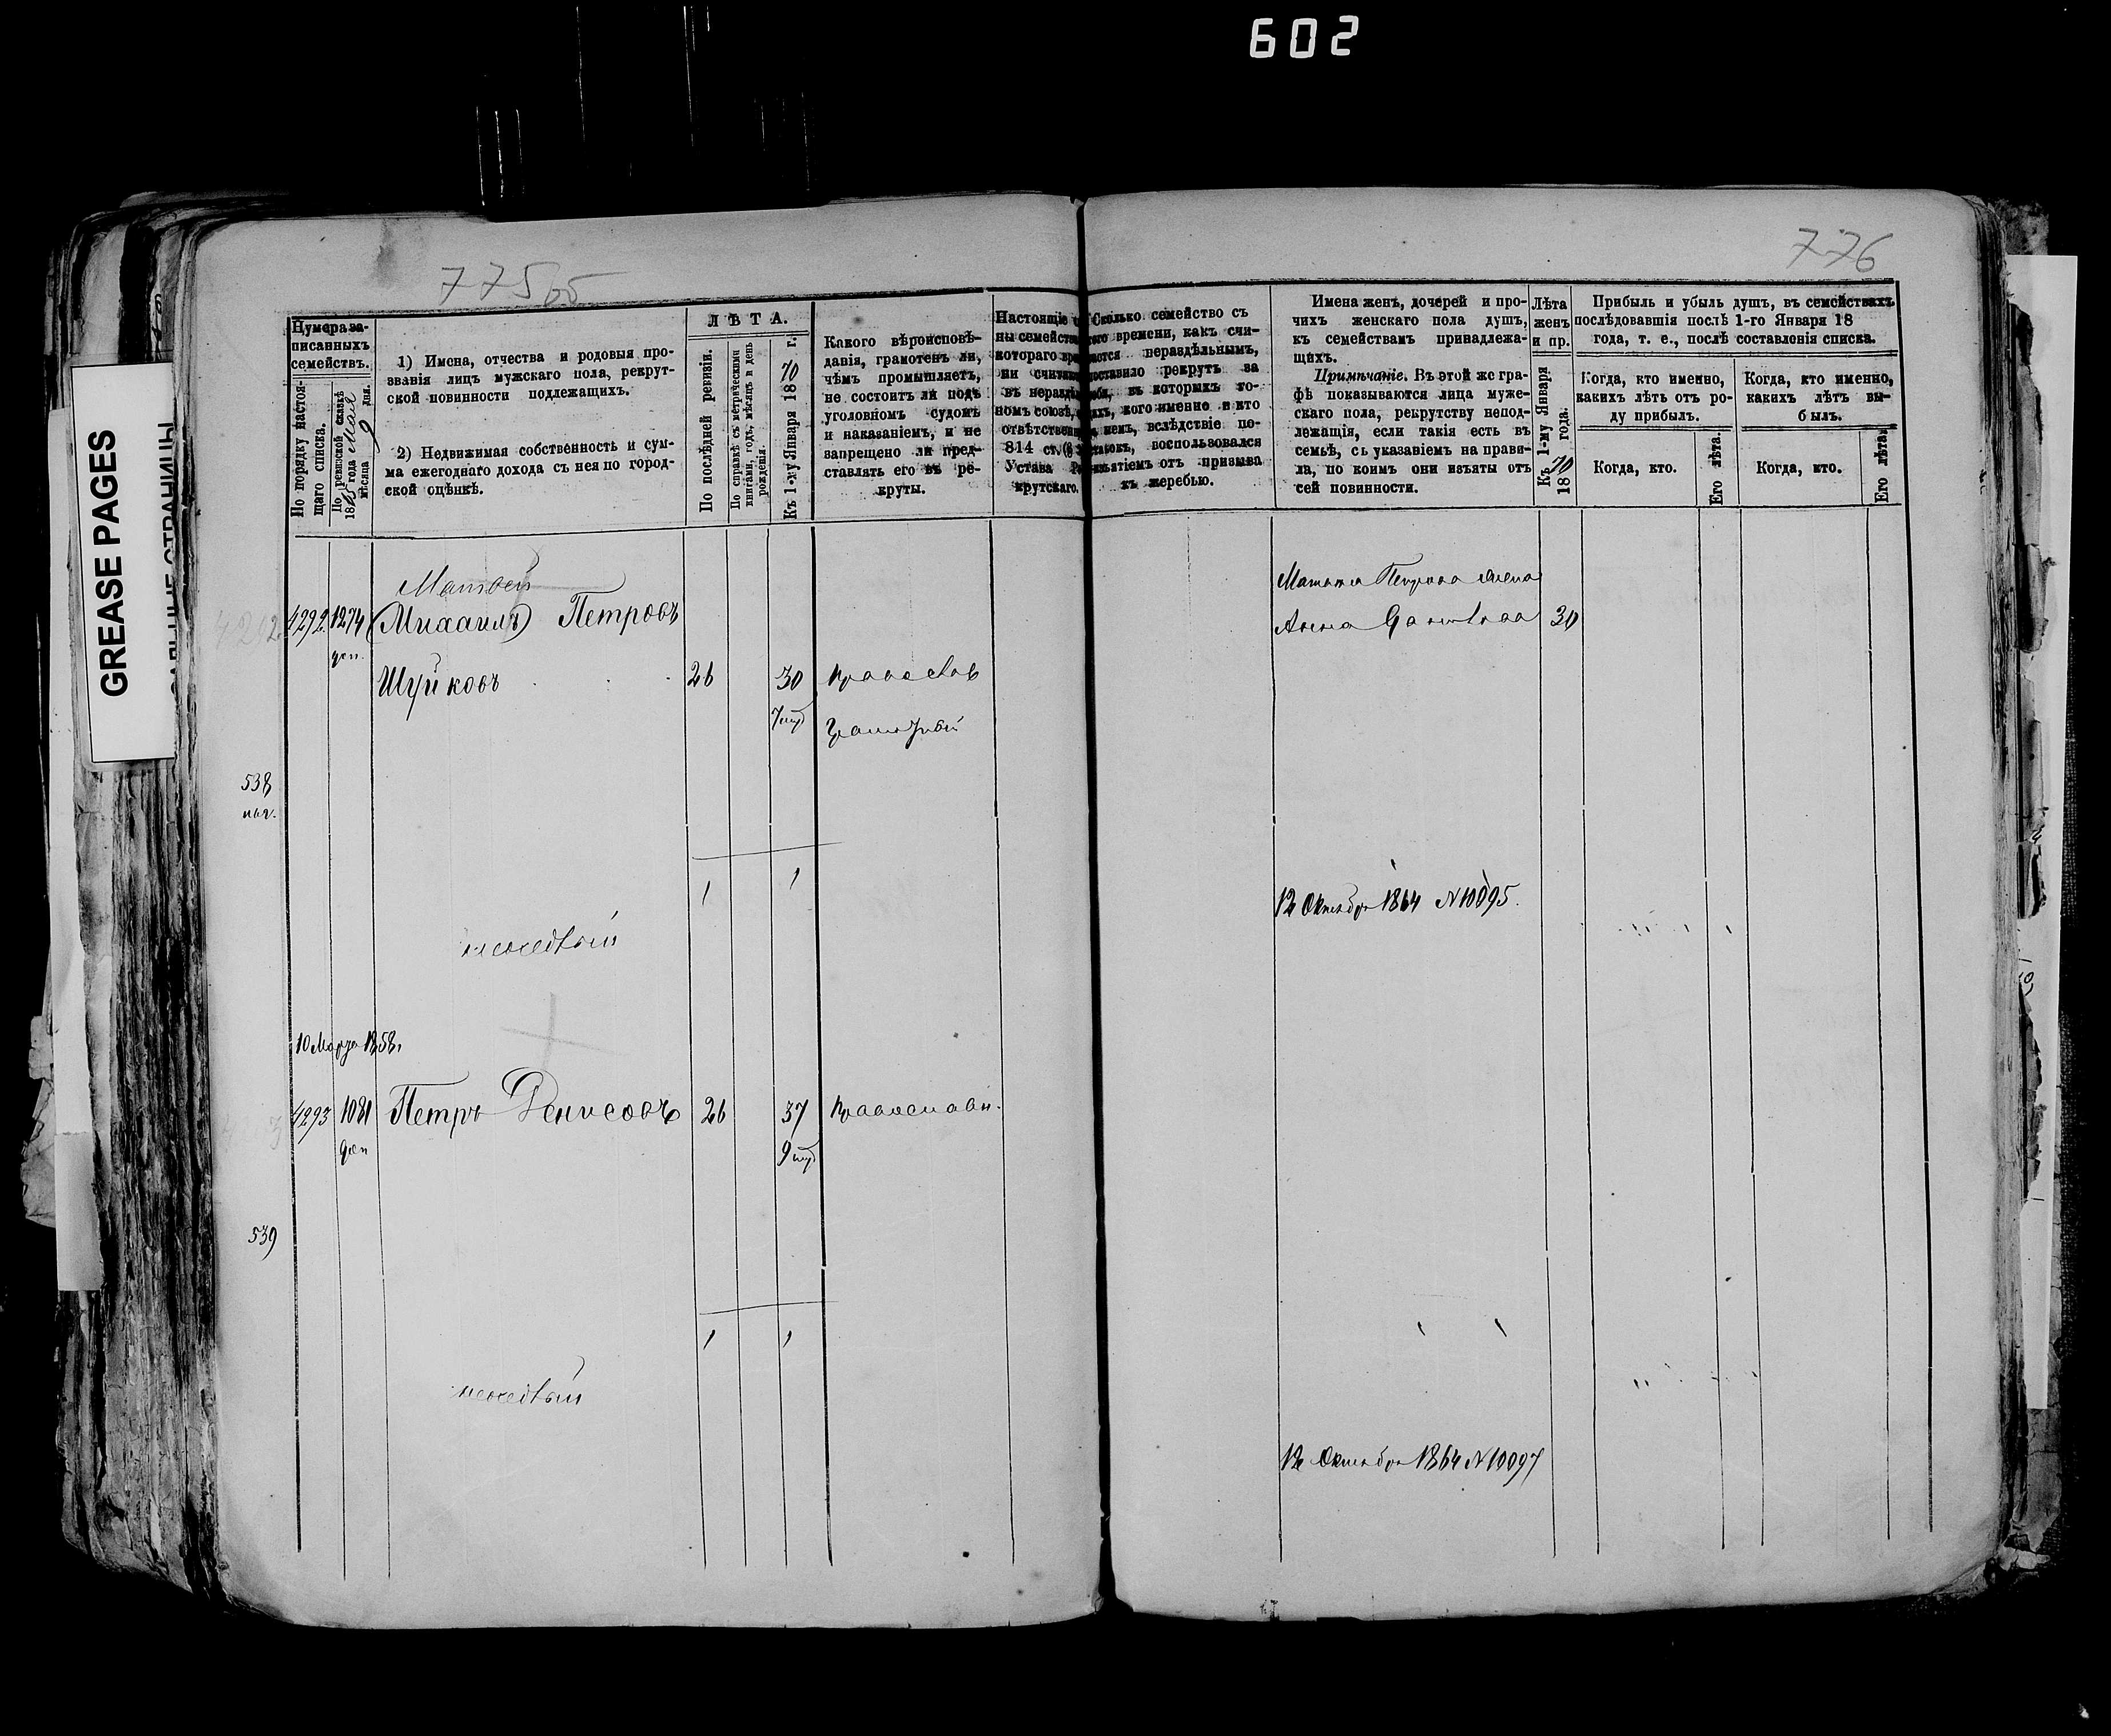 602
775 об
776
GREASE PAGES
Нумера за-
писанныхъ
семействъ.
По порядку настоя-
щаго списка.
По ревизской сказкѣ
года Мая
мѣсяца 9 дня.
1) Имена, отчества и родовыя про-
званія лицъ мужскаго пола, рекрут-
ской повинности подлежащихъ.
2) Недвижимая собственность и сум-
ма ежегоднаго дохода съ нея по город-
ской оцѣнкѣ.
ЛѢТА.
По послѣдней ревизіи.
По справкѣ съ метрическими
книгами, годъ, мѣсяцъ и день
рожденія.
Къ 1-му Января 1870 г.
Какого вѣроисповѣ-
данія, грамотенъ ли,
чѣмъ промышляетъ,
не состоитъ ли подъ
уголовномъ судомъ
и наказаніемъ, и не
запрещено ли пред-
ставлять его въ ре-
круты.
Настоящіе
ны семейства
котораго вре
ни считает
въ нераздѣ
номъ союзѣ,
отвѣтствен
814 ст.
Устава Ре
крутскаго.
Сколько семейство съ
того времени, какъ счи-
тается нераздѣльнымъ,
поставило рекрутъ за
себя, въ которыхъ го-
дахъ, кого именно и кто
въ немъ, вслѣдствіе по-
статокъ, воспользовался
изъятіемъ отъ призыва
къ жеребью.
Имена женъ, дочерей и про-
чихъ женскаго пола душъ,
къ семействамъ принадлежа-
щихъ.
Примѣчаніе. Въ этой же гра-
фѣ показываются лица муже-
скаго пола, рекрутству непод-
лежащія, если такія есть въ
семьѣ, съ указаніемъ на прави-
ла, по коимъ они изъяты отъ
сей повинности.
Лѣта
женъ
и пр.
Къ 1-му Января
1870 года.
Прибыль и убыль душъ, въ семействахъ
послѣдовавшія послѣ 1-го Января 18
года, т. е., послѣ составленія списка.
Когда, кто именно,
какихъ лѣтъ отъ ро-
ду прибылъ.
Когда, кто именно,
какихъ лѣтъ вы-
былъ.
Когда, кто.
Его лѣта.
Когда, кто.
Его лѣта.
Матвей
4292 1274 (Михаилъ) Петровъ
доп.
Шуйковъ 26 30 Православ
Грамотный
Матвея Петрова жена
Анна 30
538
1 1
12 Октября 1864 N 10095.
10 Марта 1858.
4293 1081 Петръ Денисовъ 26 37 Православн.
доп
539
1 1
12 Октября 1864 N 10097